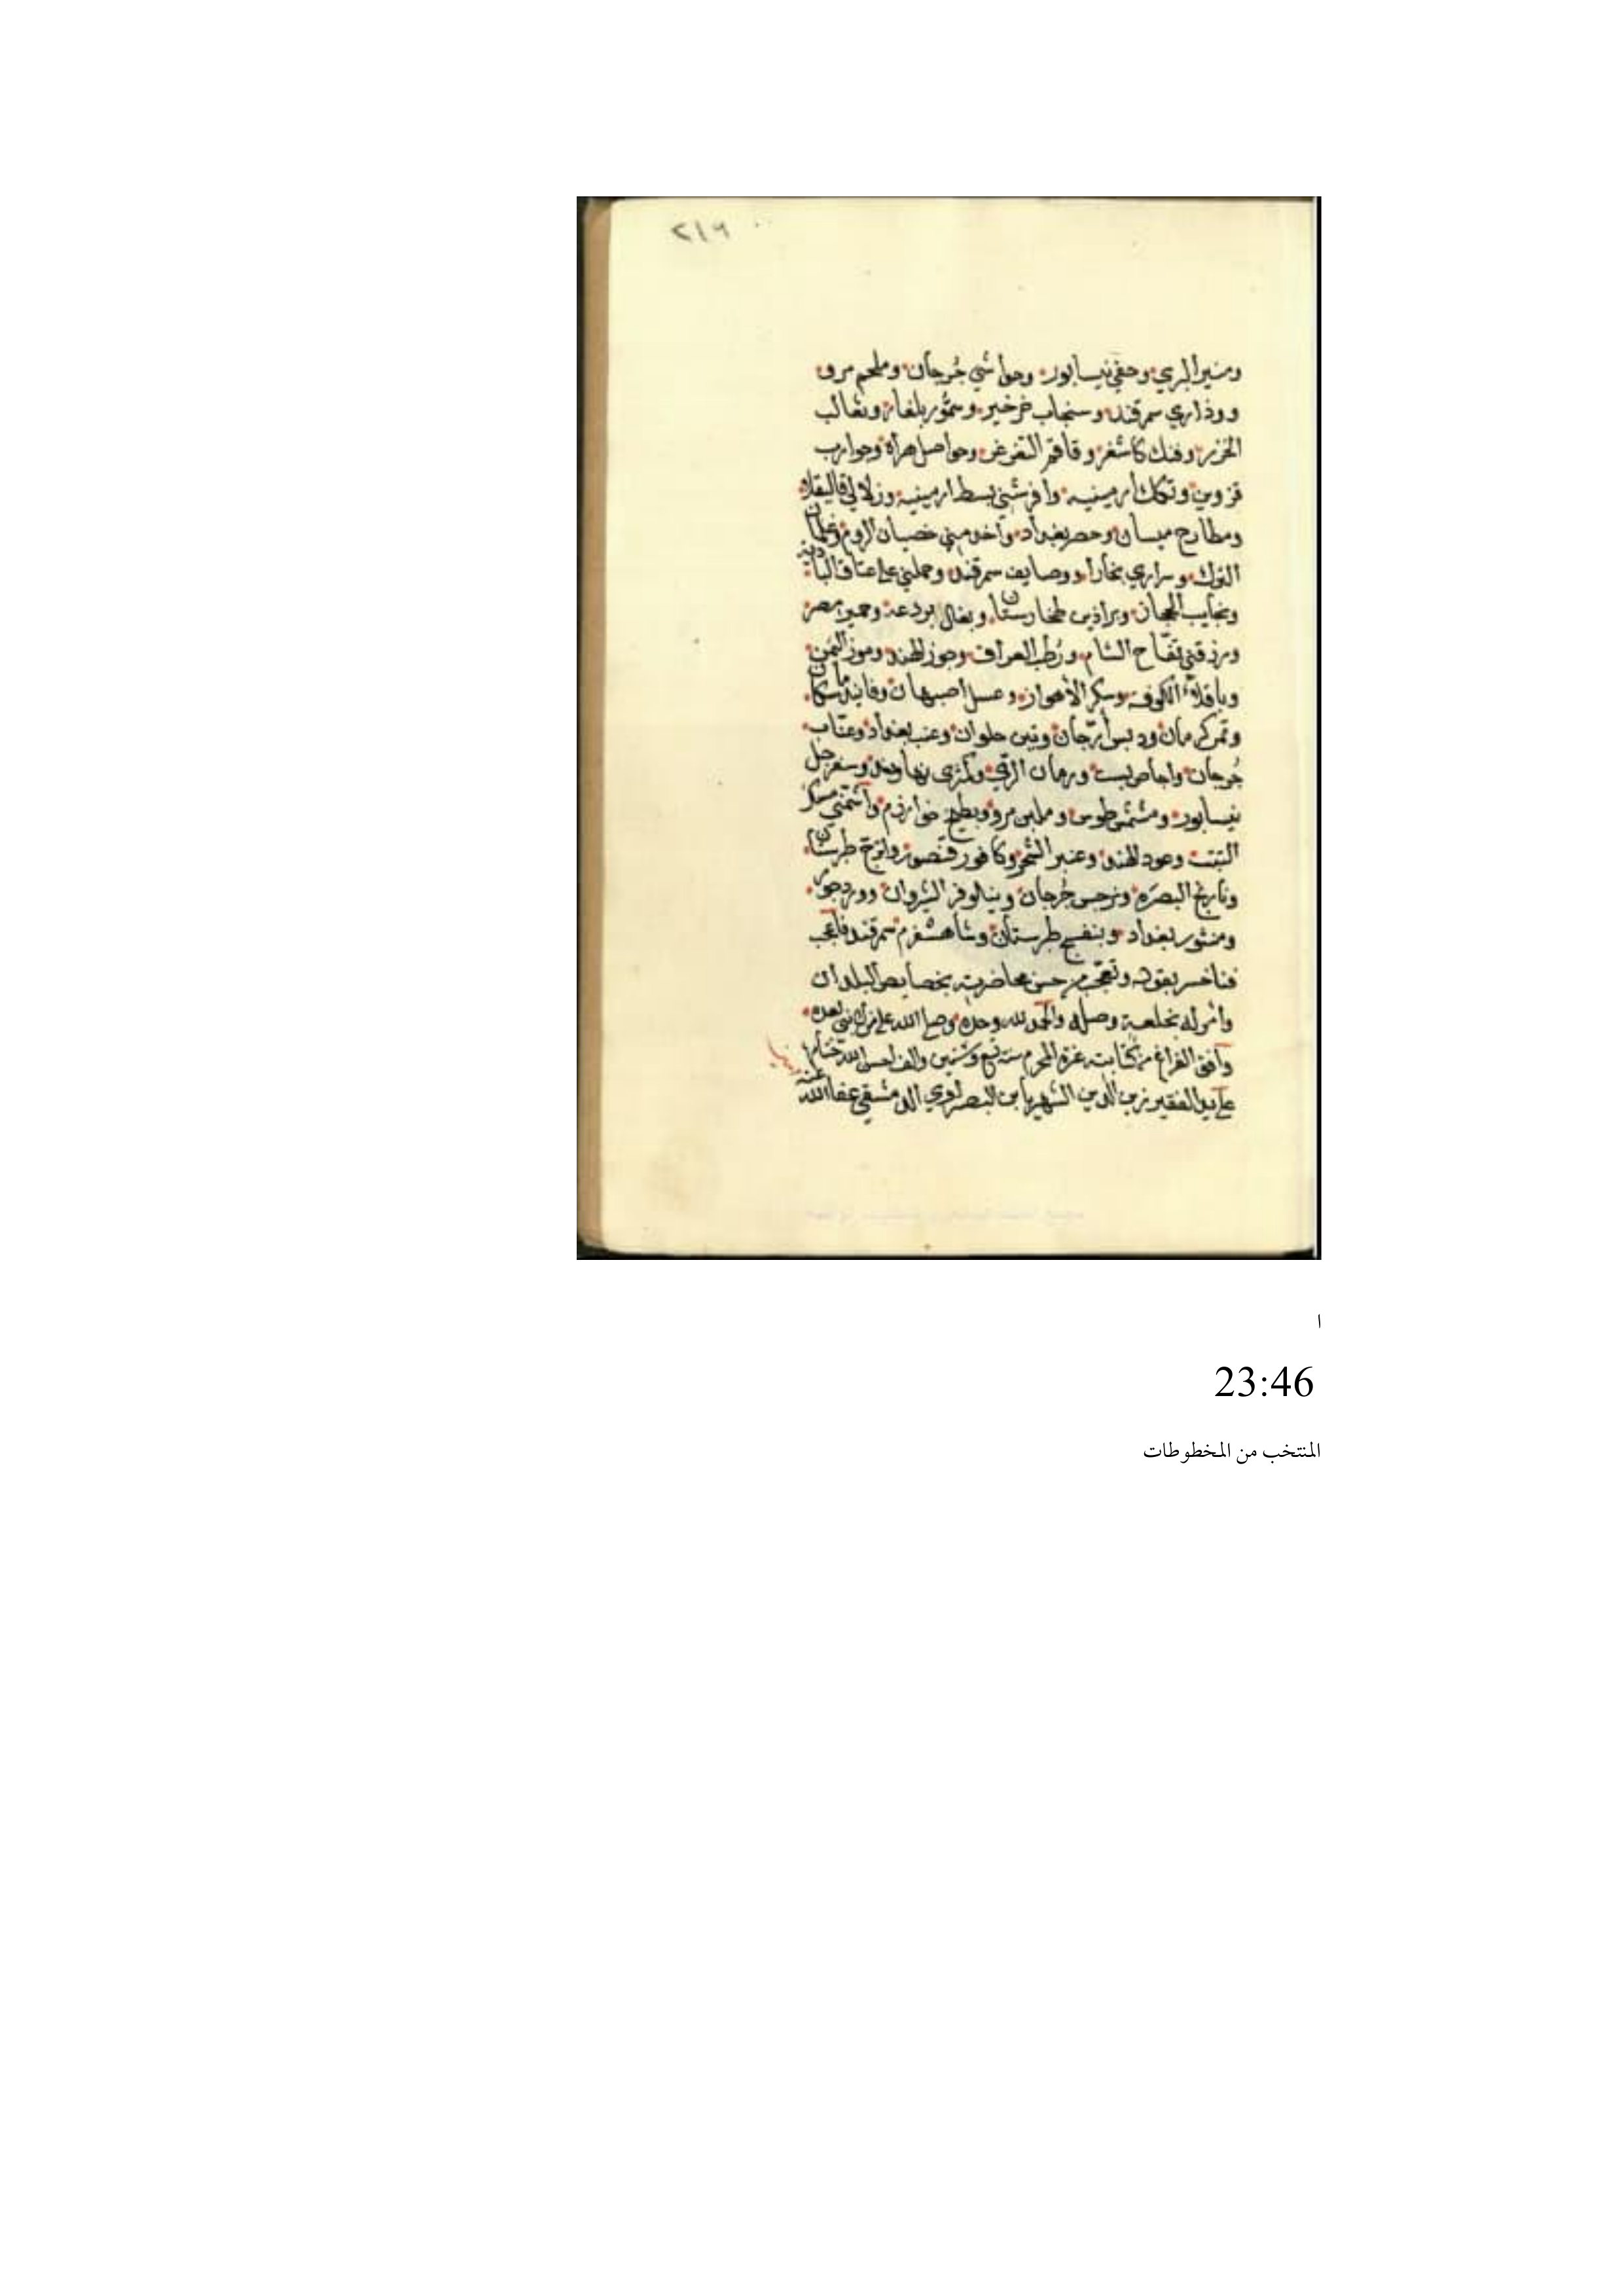 ٢١٦
ومنير الري وحفي نيسابور وحواشي جُرجان وملحم مرو
ووذاري سمرقند وسنجاب خرخيز وسمُّور بلغار وثعالب
الخزر وفنك كاشغر وقاقم التغزغز وحواصل هراة وجوارب
قزوين وتكك ارمينيه وافرشني بسط ارمينيه وزلالي قاليقلا
ومطارح ميسان وحصر بغداد واخدمني خصيان الروم وغلمان
الترك وسراري بخارا ووصايف سمرقند وحملني على عتاق البادية
ونجايب الحجاز وبراذين طخارستان وبغال بردعة وحمير مصر
ورزقني تفّاح الشام ورُطب العراق وجوز الهند وموز اليمن
وباقلاء الكوفه وسكر الأهواز وعسل اصبهان وفانيد ماسكان
وتمر كرمان ودبس أرّجان وتين حلوان وعنب بغداد وعنّاب
جُرجان واجاص بست ورمان الرّي وكمثرى نهاوند وسفرجل
نيسابور ومشمش طوس وملبن مرو وبطيخ خوارزم وأشمّني مسك
التبت وعود الهند وعنبر الشحر وكافور قنصور واترج طبرستان
ونارنج البصرَه ونرجس جُرجان ونيلوفر الشيروان وورد جور
ومنثور بغداد وبنفسج طبرستان وشاهسفرم سمرقند فاعجب
فناخسر بقوله وتعجّب من حسن محاضرته بخصايص البلدان
وأمر له بخلعة وصله والحمد لله وحده وصلى الله على من لا نبي بعده
وافق الفراغ من كتابته غرة المحرم سنة تسع وستين والف احسن الله ختامها
على يد الفقير زين الدين الشهير بابن البصراوي الدمشقي عفا الله عنه
ا
23:46
المنتخب من المخطوطات